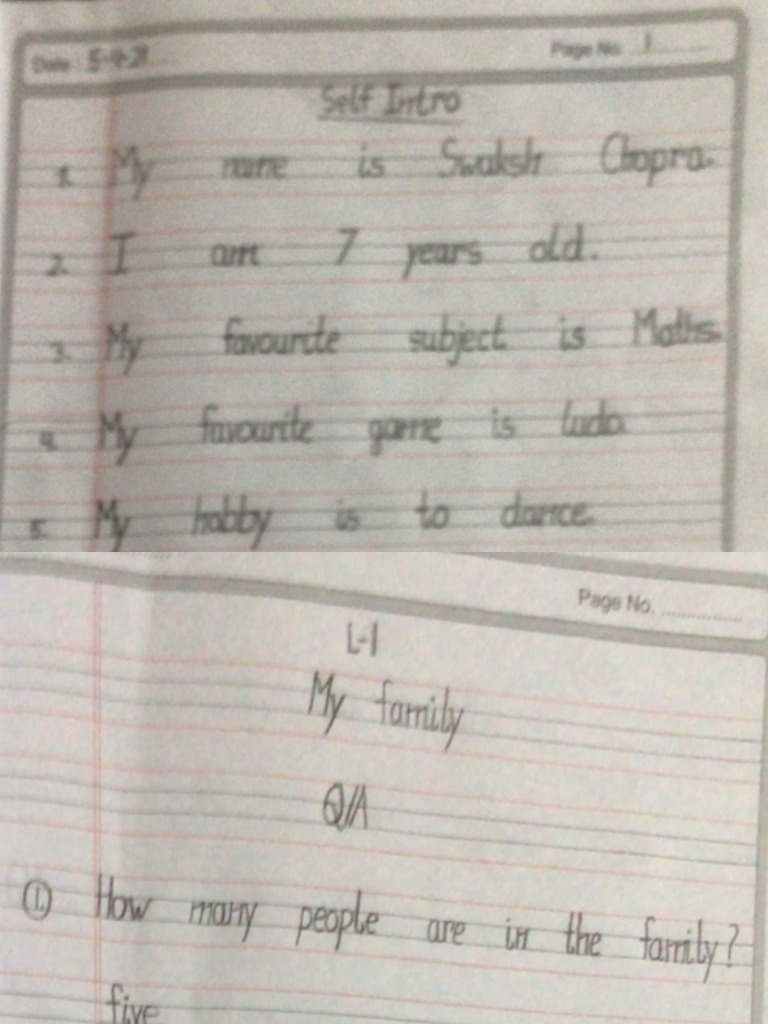 Date: 5-4-21 Page No. 1
Self Intro
1. My name is Swaksh Chopra.
2. I am 7 years old.
3. My favourite subject is Maths.
4. My favourite game is ludo
5. My hobby is to dance.
Page No.
L-1
My family
Q/A
1. How many people are in the family?
five